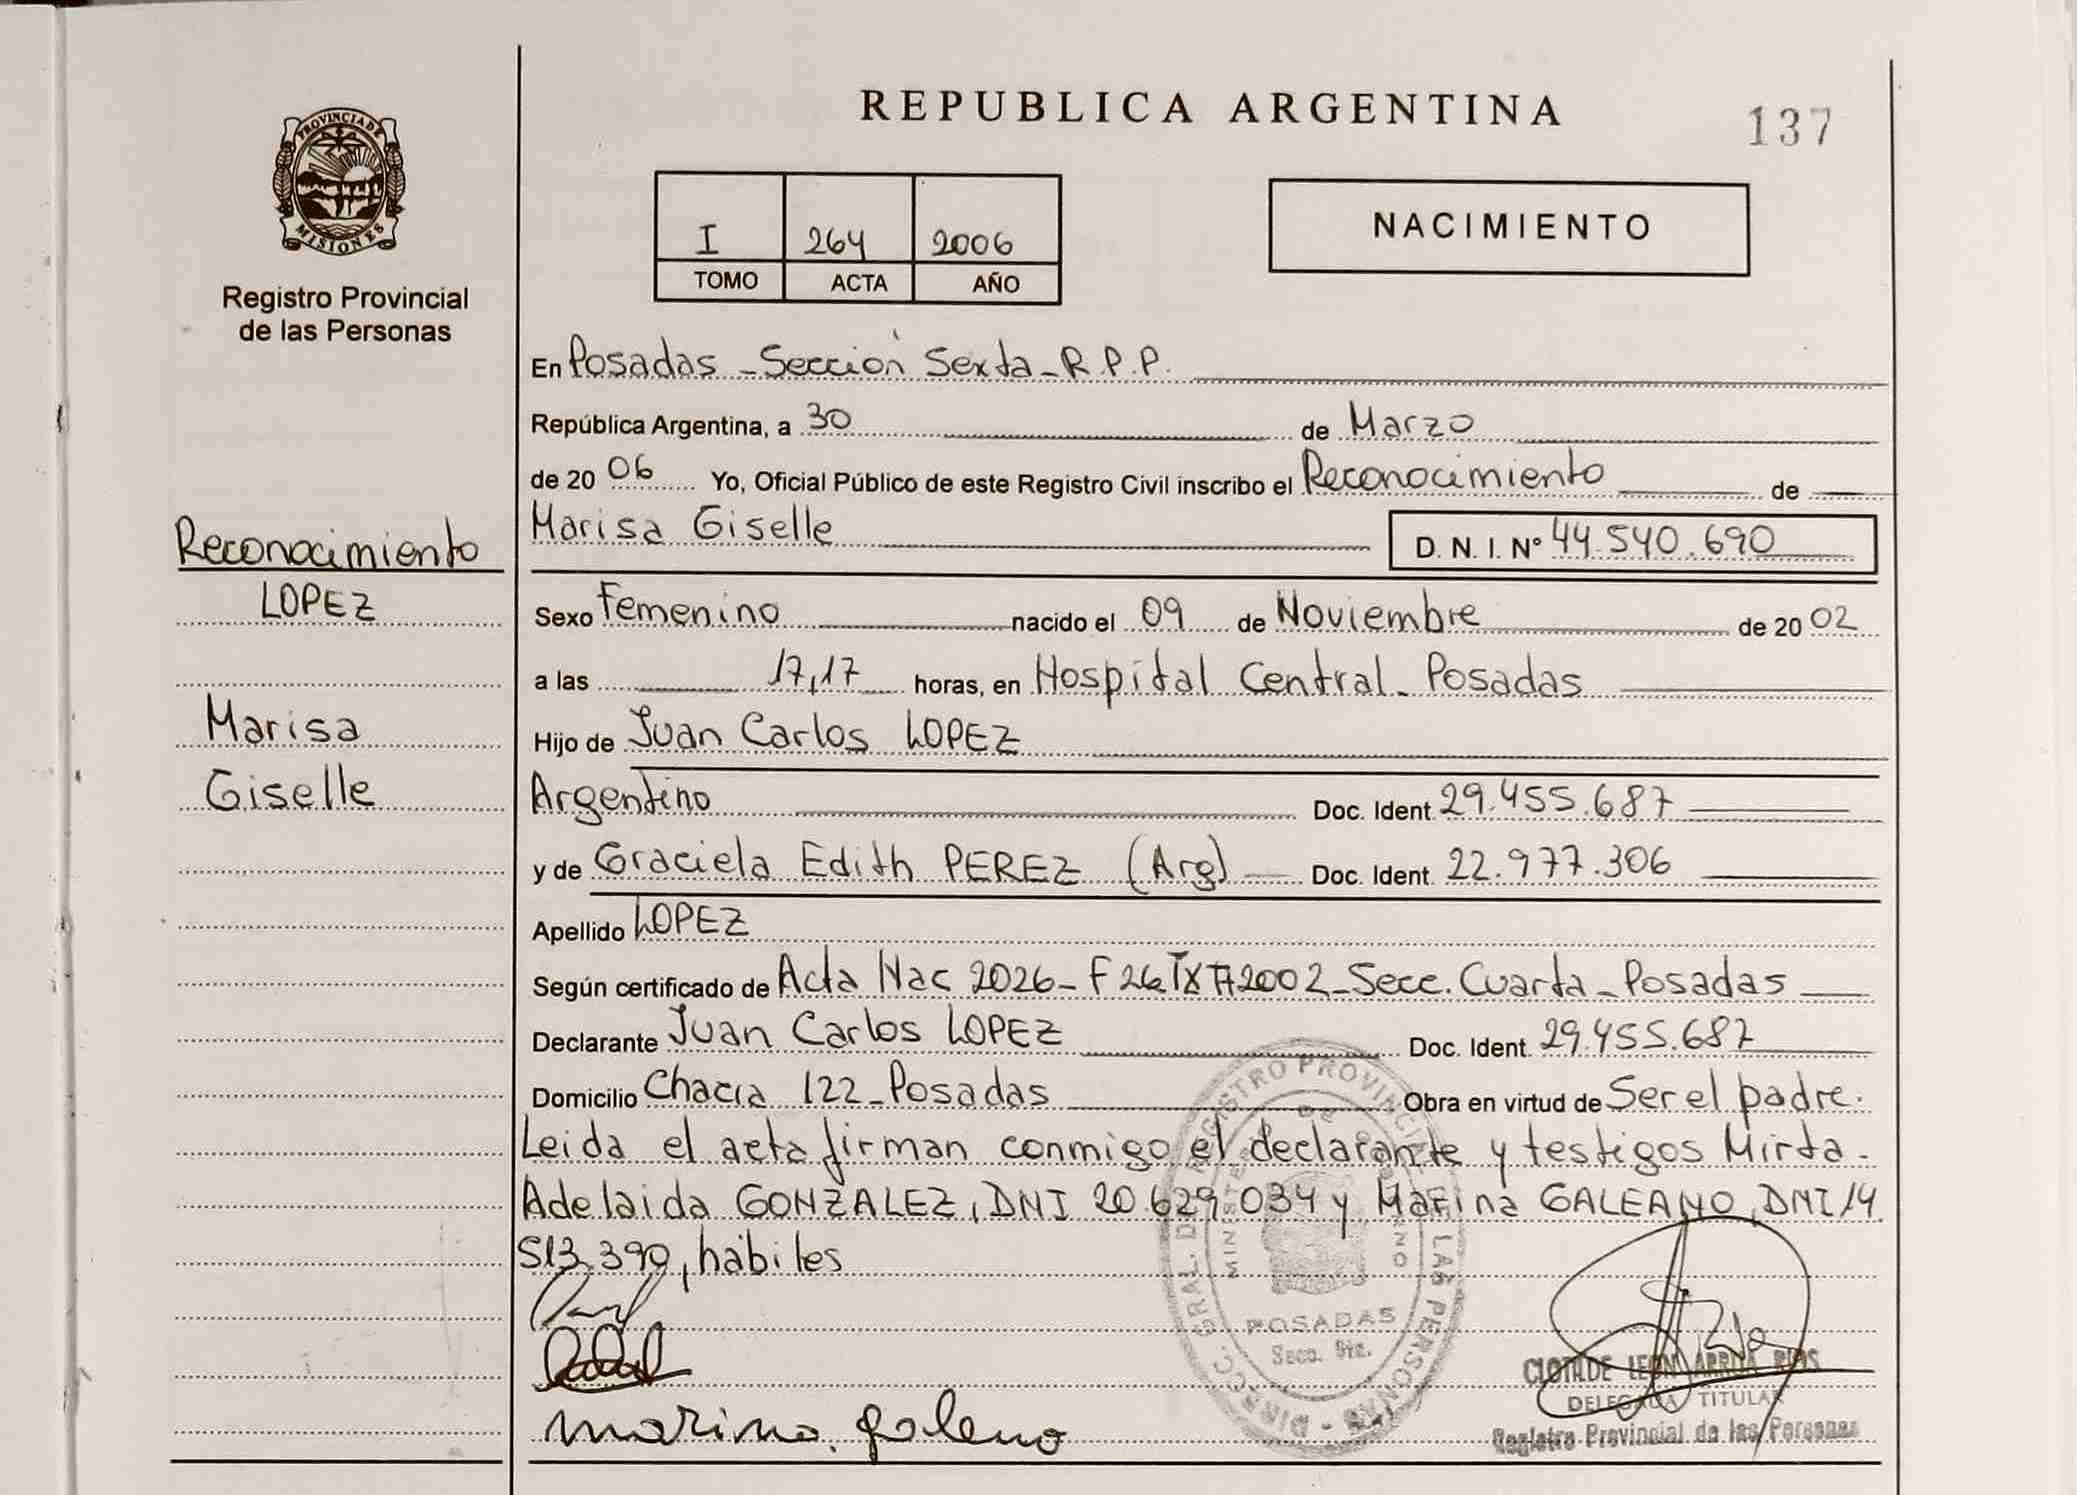 REPUBLICA ARGENTINA
137
PROVINCIA DE
MISIONES
Registro Provincial
de las Personas
I 264 2006
TOMO ACTA AÑO
NACIMIENTO
En Posadas - Sección Sexta - R.P.P.
República Argentina, a 30 de Marzo
de 2006 Yo, Oficial Público de este Registro Civil inscribo el Reconocimiento de
Marisa Giselle D. N. I. Nº 44.540.690
Reconocimiento
LOPEZ
Marisa
Giselle
Sexo Femenino nacido el 09 de Noviembre de 2002
a las 17,17 horas, en Hospital Central - Posadas
Hijo de Juan Carlos LOPEZ
Argentino Doc. Ident. 29.455.687
y de Graciela Edith PEREZ (Arg) Doc. Ident. 22.977.306
Apellido LOPEZ
Según certificado de Acta Nac 2026 - F 26 2002 - Secc. Cuarta - Posadas
Declarante Juan Carlos LOPEZ Doc. Ident. 29.455.687
Domicilio 122 - Posadas Obra en virtud de Ser el padre.
Leida el acta firman conmigo el declarante y testigos Mirta -
Adelaida GONZALEZ, DNI 20.629.034 y Marina GALEANO, DNI 14.
513.390, hábiles
marina galeno
POSADAS
Secc. 6ta.
CLOTILDE LEON
DELEGADA TITULAR
Registro Provincial de las Personas